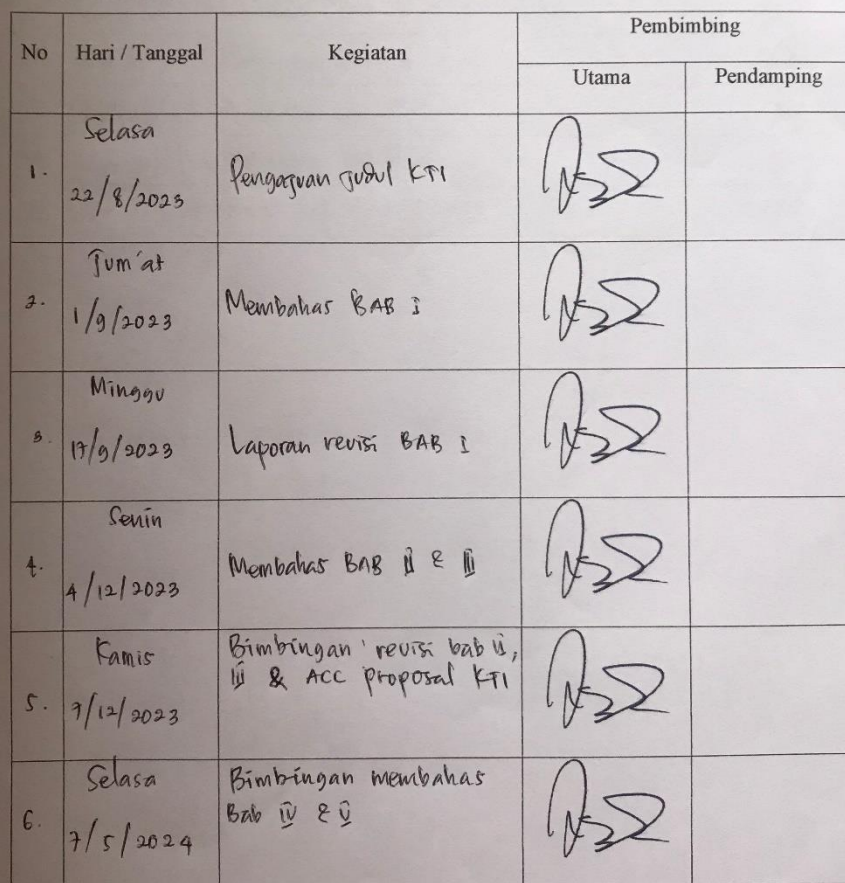 No Hari / Tanggal Kegiatan Pembimbing
Utama Pendamping
1. Selasa
22/8/2023
Pengajuan Judul KTI
2. Jum'at
1/9/2023
Membahas BAB I
3. Minggu
17/9/2023
Laporan revisi BAB I
4. Senin
4/12/2023
Membahas BAB II & III
5. Kamis
7/12/2023
Bimbingan revisi bab II,
III & ACC proposal KTI
6. Selasa
7/5/2024
Bimbingan membahas
Bab IV & V